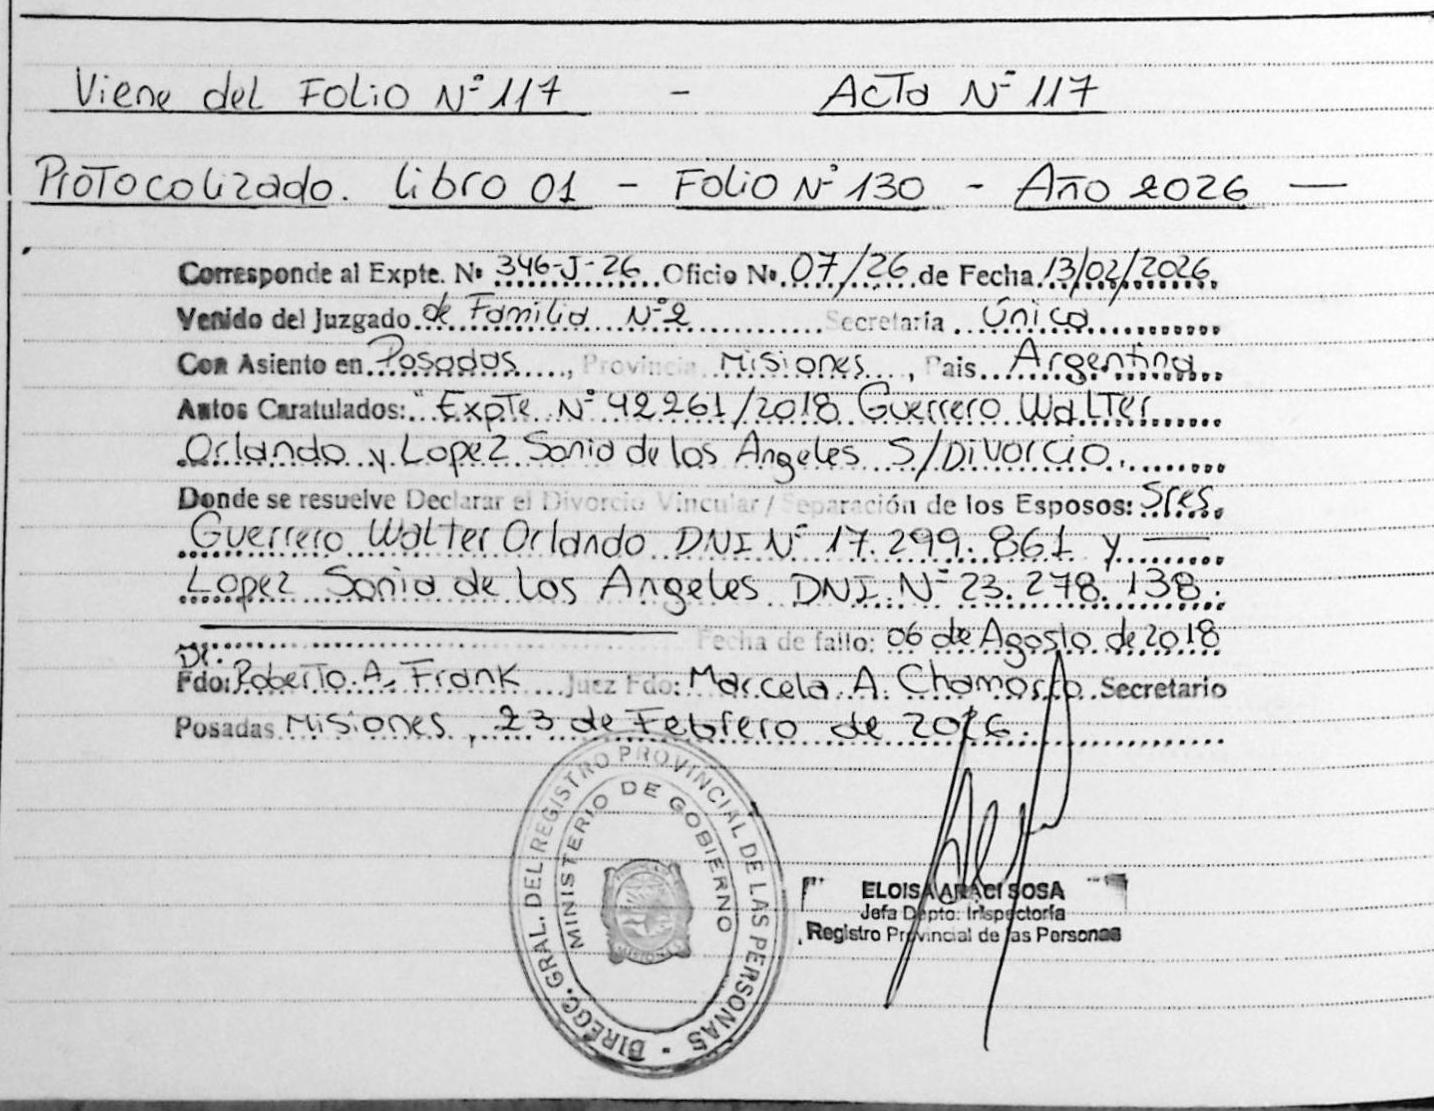 Viene del Folio Nº 117 - Acta Nº 117
Protocolizado. Libro 01 - Folio Nº 130 - Año 2026 —
Corresponde al Expte. Nº 346-J-26 Oficio Nº 07/26 de Fecha 13/02/2026
Venido del Juzgado de Familia Nº 2 Secretaria Única
Con Asiento en Posadas, Provincia Misiones, Pais Argentina
Autos Caratulados: "Expte Nº 42261/2018 Guerrero Walter
Orlando y Lopez Sonia de los Angeles S/Divorcio.
Donde se resuelve Declarar el Divorcio Vincular / Separación de los Esposos: Sres.
Guerrero Walter Orlando DNI Nº 17.299.861 y —
Lopez Sonia de los Angeles DNI Nº 23.278.138.
Fecha de fallo: 06 de Agosto de 2018
Dr.
Fdo: Roberto A. Frank Juez Fdo: Marcela A. Chamorro Secretario
Posadas Misiones, 23 de Febrero de 2026.
DIRECC. GRAL. DEL REGISTRO PROVINCIAL DE LAS PERSONAS
MINISTERIO DE GOBIERNO
MISIONES
ELOISA ARACI SOSA
Jefa Depto. Inspectoría
Registro Provincial de las Personas